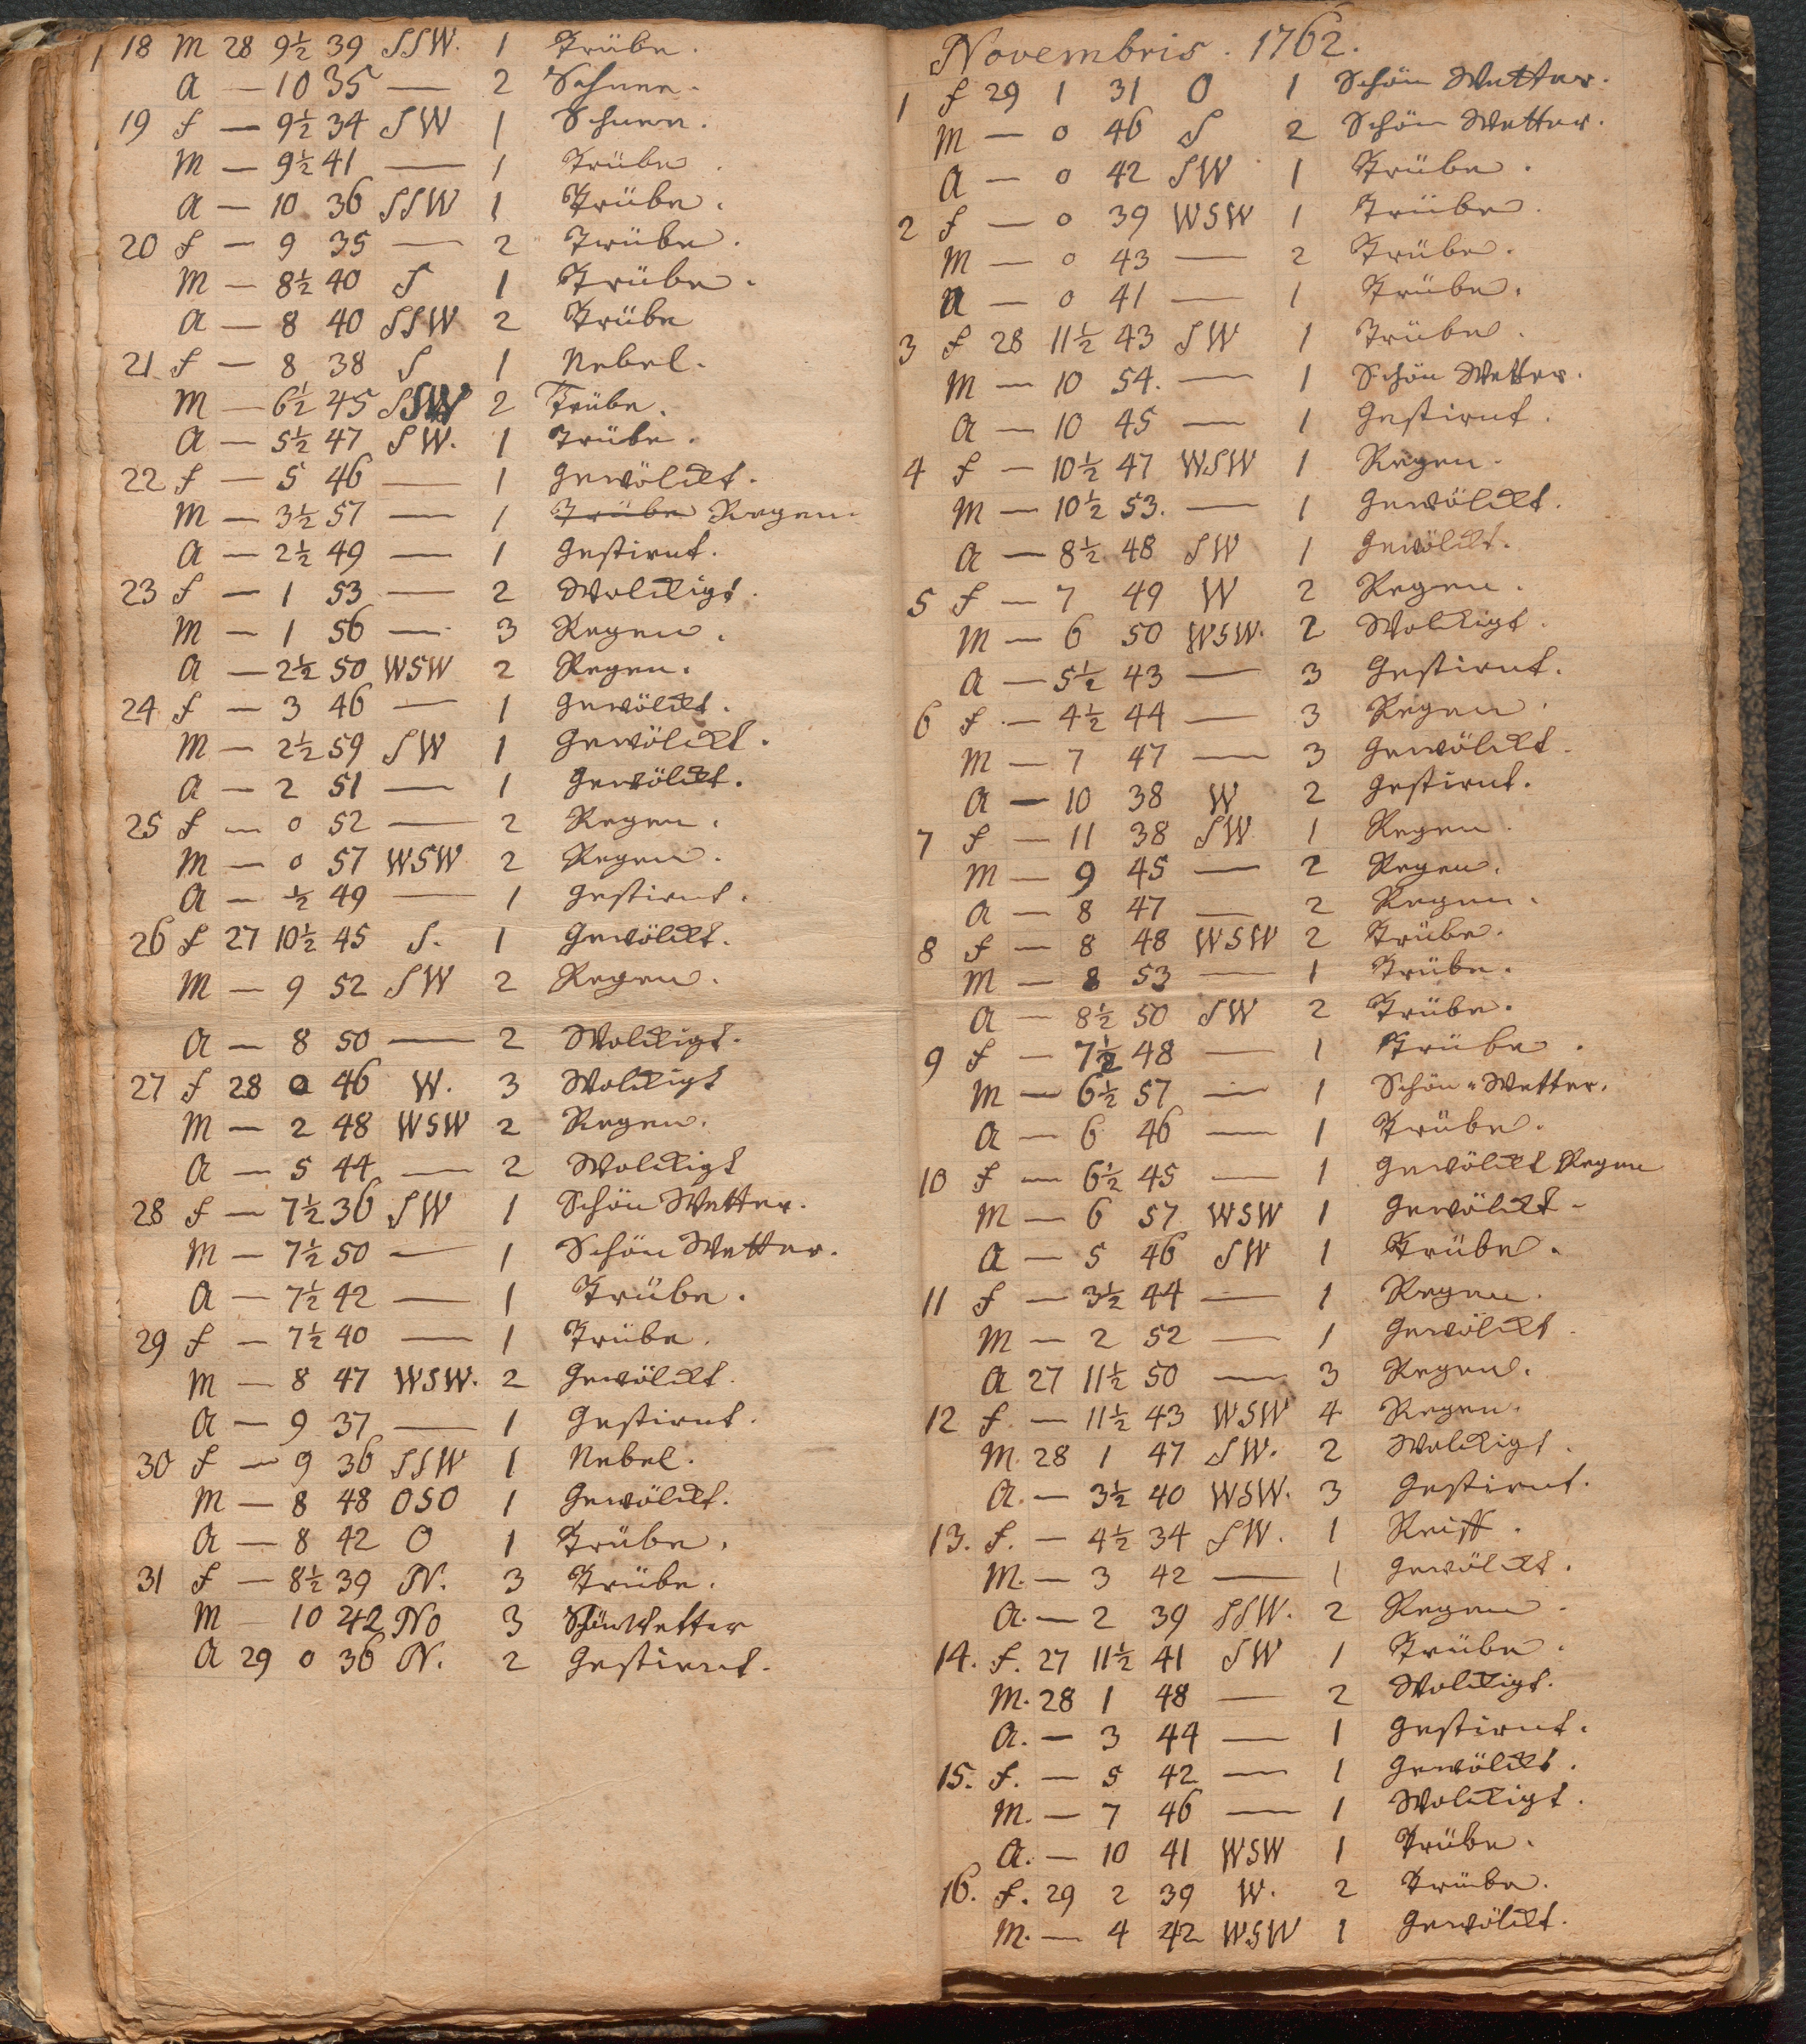 18 M 28 9½ 39 SSW. 1 Trübe.
A — 10 35 — 2 Schnee.
19 f — 9½ 34 SW 1 Schnee.
M — 9½ 41 — 1 Trübe.
A — 10 36 SSW 1 Trübe.
20 f — 9 35 — 2 Trübe.
M — 8½ 40 S 1 Trübe.
A — 8 40 SSW 2 Trübe
21 f — 8 38 S 1 Nebel.
M — 6½ 45 SSW 2 Trübe.
A — 5½ 47 SW. 1 Trübe.
22 f — 5 46 — 1 Gewölckt.
M — 3½ 57 — 1 Trübe Regen.
A — 2½ 49 — 1 Gestirnt.
23 f — 1 53 — 2 Wolckigt.
M — 1 56 — 3 Regen.
A — 2½ 50 WSW 2 Regen.
24 f — 3 46 — 1 Gewölckt.
M — 2½ 59 SW 1 Gewölckt.
A — 2 51 — 1 Gewölckt.
25 f — 0 52 — 2 Regen.
M — 0 57 WSW 2 Regen.
A — ½ 49 — 1 Gestirnt.
26 f 27 10½ 45 S. 1 Gewölckt.
M — 9 52 SW 2 Regen.
A — 8 50 — 2 Wolckigt.
27 f 28 0 46 W. 3 Wolckigt
M — 2 48 WSW 2 Regen.
A — 5 44 — 2 Wolckigt
28 f — 7½ 36 SW 1 Schön Wetter.
M — 7½ 50 — 1 Schön Wetter.
A — 7½ 42 — 1 Trübe.
29 f — 7½ 40 — 1 Trübe.
M — 8 47 WSW. 2 Gewölckt.
A — 9 37 — 1 Gestirnt.
30 f — 9 36 SSW 1 Nebel.
M — 8 48 OSO 1 Gewölckt.
A — 8 42 O 1 Trübe.
31 f — 8½ 39 N. 3 Trübe.
M — 10 42 NO 3 Schön Wetter
A 29 0 36 N. 2 Gestirnt.
Novembris. 1762.
1 f 29 1 31 O 1 Schön Wetter.
M — 0 46 S 2 Schön Wetter.
A — 0 42 SW 1 Trübe.
2 f — 0 39 WSW 1 Trübe.
M — 0 43 — 2 Trübe.
A — 0 41 — 1 Trübe.
3 f 28 11½ 43 SW 1 Trübe.
M — 10 54. — 1 Schön Wetter.
A — 10 45 — 1 Gestirnt.
4 f — 10½ 47 WSW 1 Regen.
M — 10½ 53. — 1 Gewölckt.
A — 8½ 48 SW 1 Gewölckt.
5 f — 7 49 W 2 Regen.
M — 6 50 WSW. 2 Wolckigt.
A — 5½ 43 — 3 Gestirnt.
6 f — 4½ 44 — 3 Regen.
M — 7 47 — 3 Gewölckt.
A — 10 38 W 2 Gestirnt.
7 f — 11 38 SW. 1 Regen.
M — 9 45 — 2 Regen.
A — 8 47 — 2 Regen.
8 f — 8 48 WSW 2 Trübe.
M — 8 53 — 1 Trübe.
A — 8½ 50 SW 2 Trübe.
9 f — 7½ 48 — 1 Trübe.
M — 6½ 57 — 1 Schön Wetter.
A — 6 46 — 1 Trübe.
10 f — 6½ 45 — 1 Gewölckt Regen
M — 6 57 WSW 1 Gewölckt.
A — 5 46 SW 1 Trübe.
11 f — 3½ 44 — 1 Regen.
M — 2 52 — 1 Gewölckt.
A 27 11½ 50 — 3 Regen.
12 f. — 11½ 43 WSW 4 Regen.
M. 28 1 47 SW. 2 Wolckigt.
A. — 3½ 40 WSW. 3 Gestirnt.
13. f. — 4½ 34 SW. 1 Reiff.
M. — 3 42 — 1 Gewölckt.
A. — 2 39 SSW. 2 Regen.
14. f. 27 11½ 41 SW 1 Trübe.
M. 28 1 48 — 2 Wolckigt.
A. — 3 44 — 1 Gestirnt.
15. f. — 5 42 — 1 Gewölckt.
M. — 7 46 — 1 Wolckigt.
A. — 10 41 WSW 1 Trübe.
16. f. 29 2 39 W. 2 Trübe.
M. — 4 42 WSW 1 Gewölckt.